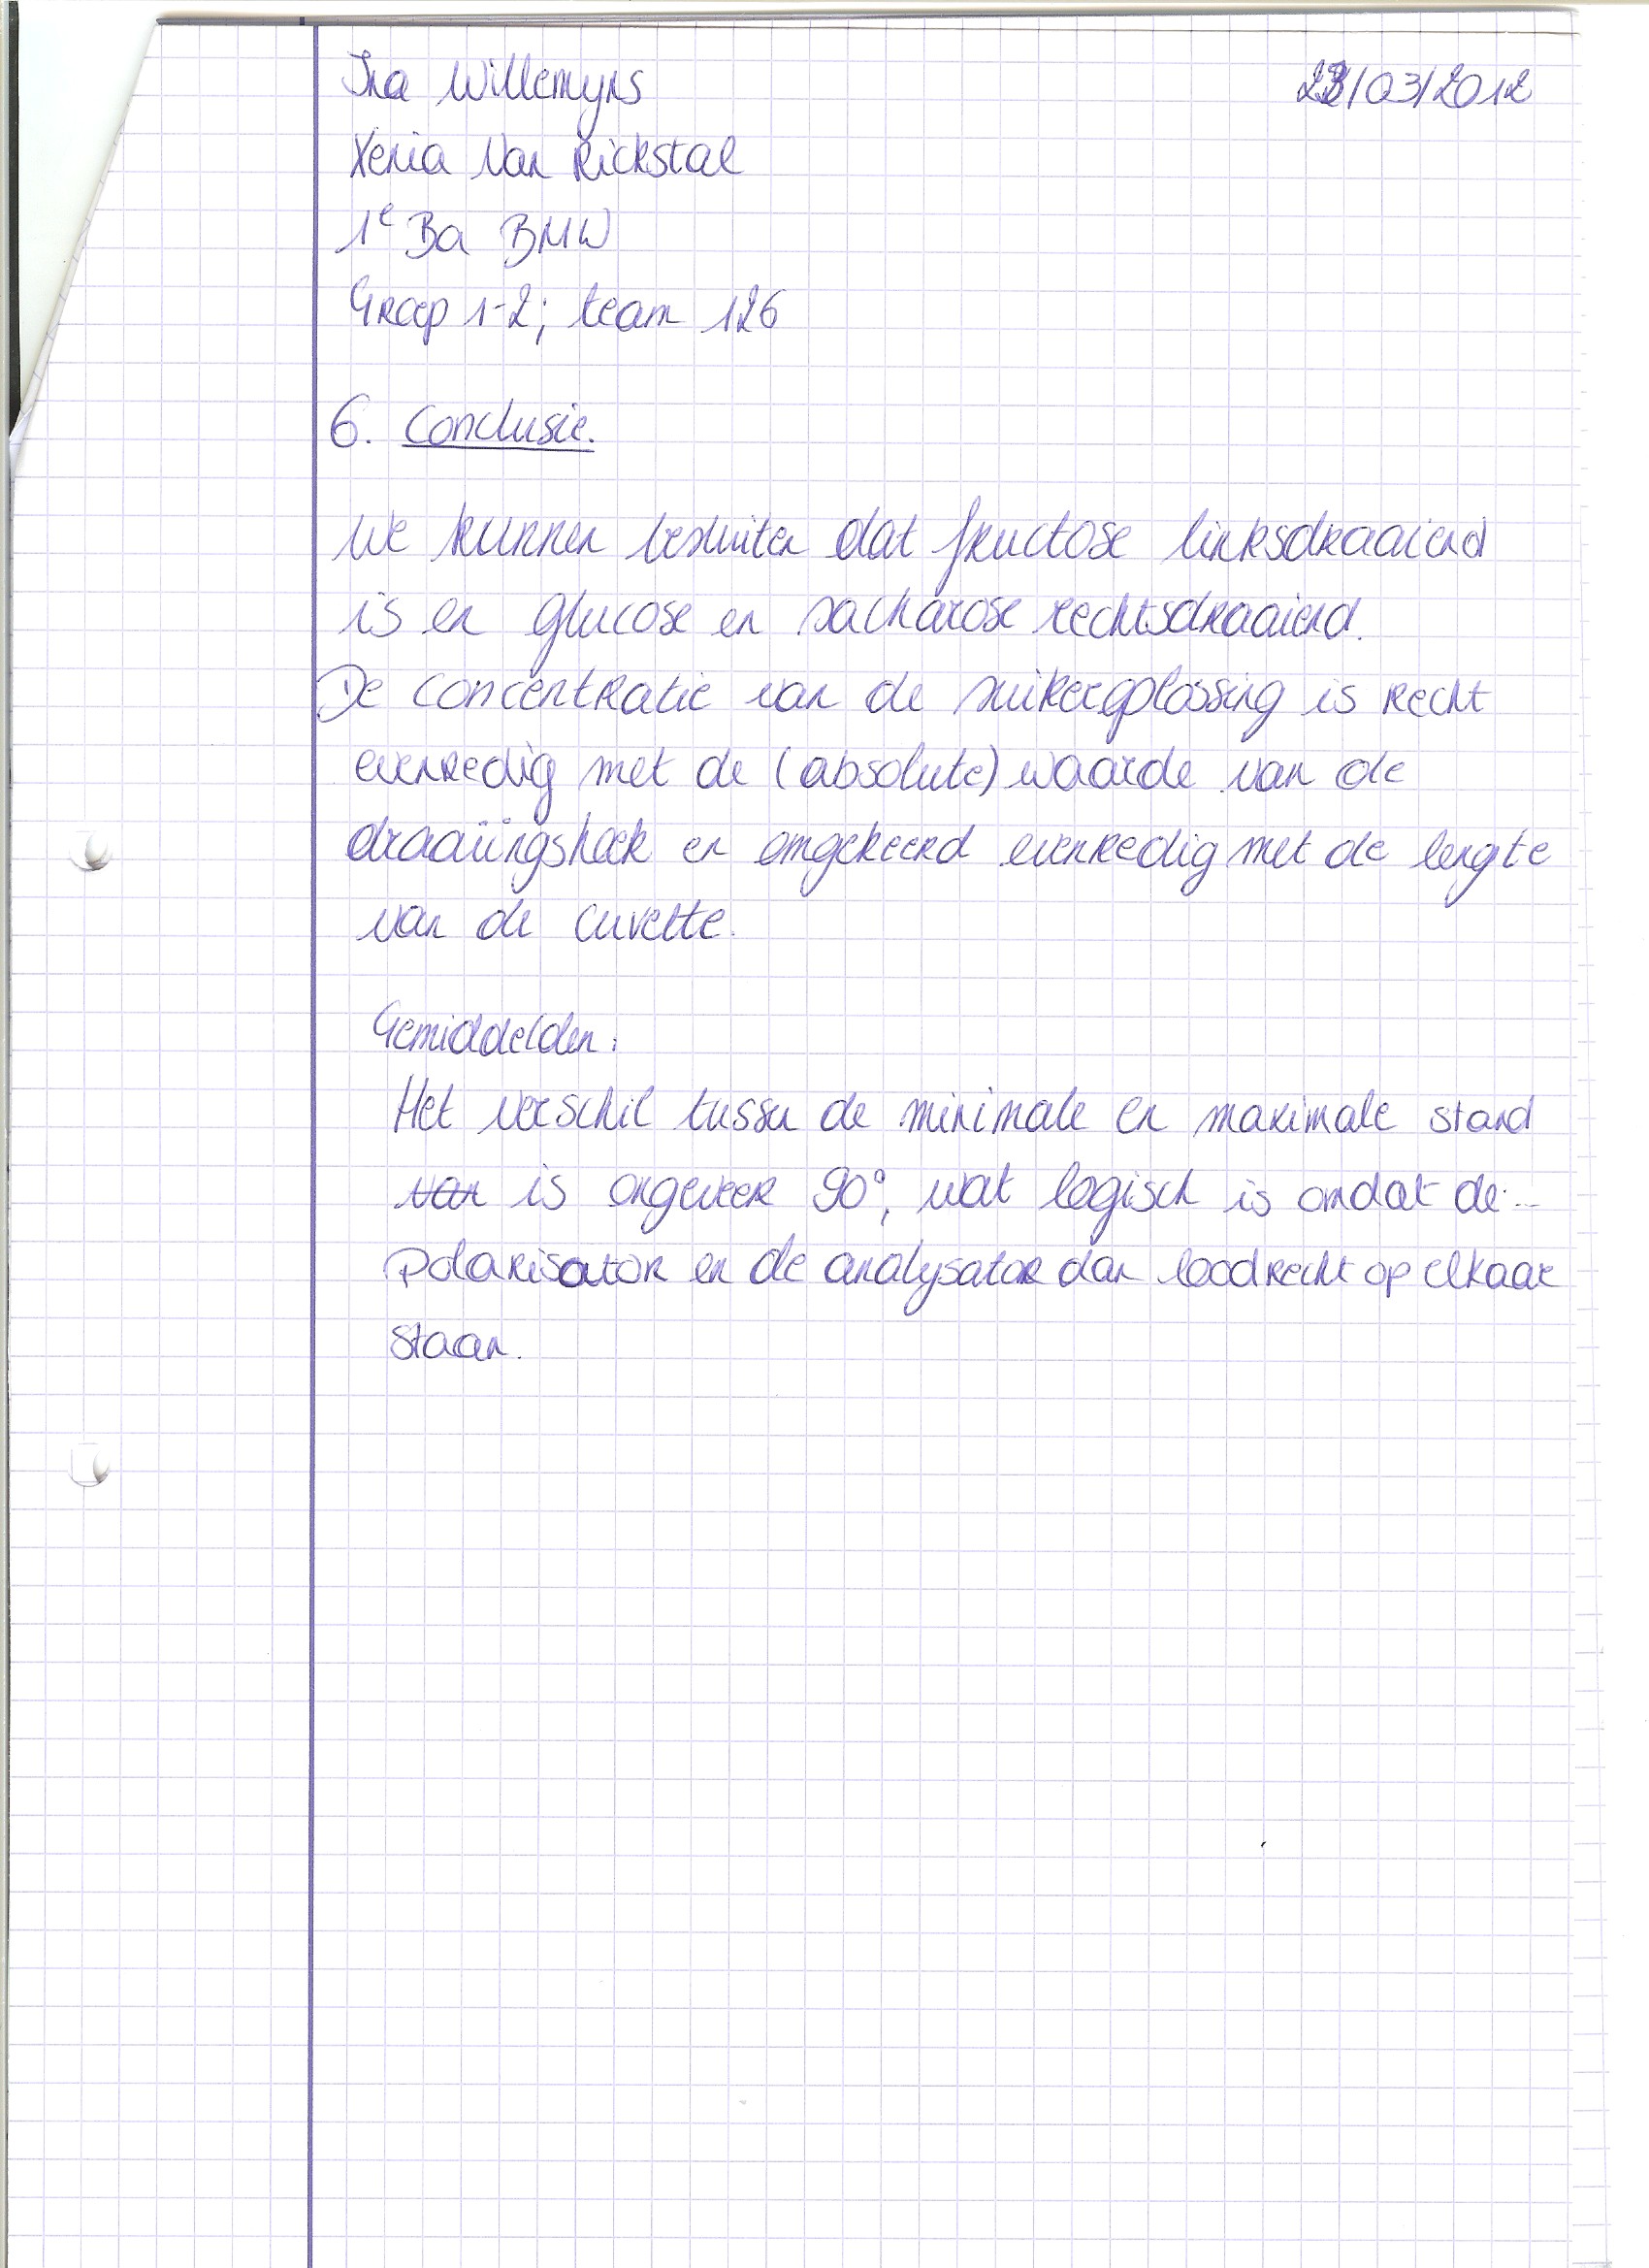 Ina Willemyns
Xenia Van Rickstal
1e Ba BMW
Groep 1-2; team 126
/03/2012
6. Conclusie.
We kunnen besluiten dat fructose linksdraaiend
is en glucose en sacharose rechtsdraaiend.
De concentratie van de suikeroplossing is recht
evenredig met de (absolute) waarde van de
draaiingshoek en omgekeerd evenredig met de lengte
van de cuvette.
Gemiddelden:
Het verschil tussen de minimale en maximale stand
van is ongeveer 90°, wat logisch is omdat de...
polarisator en de analysator dan loodrecht op elkaar
staan.